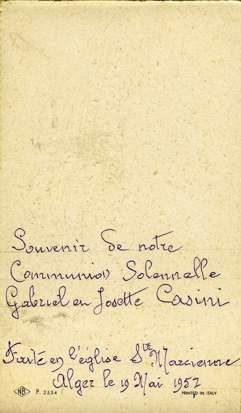 Souvenir de notre
Communion Solennelle
Gabriel en Josette Casini
Faite en l'église Ste Marcienne
Alger le 19 Mai 1957
NB P. 2534 PRINTED IN ITALY